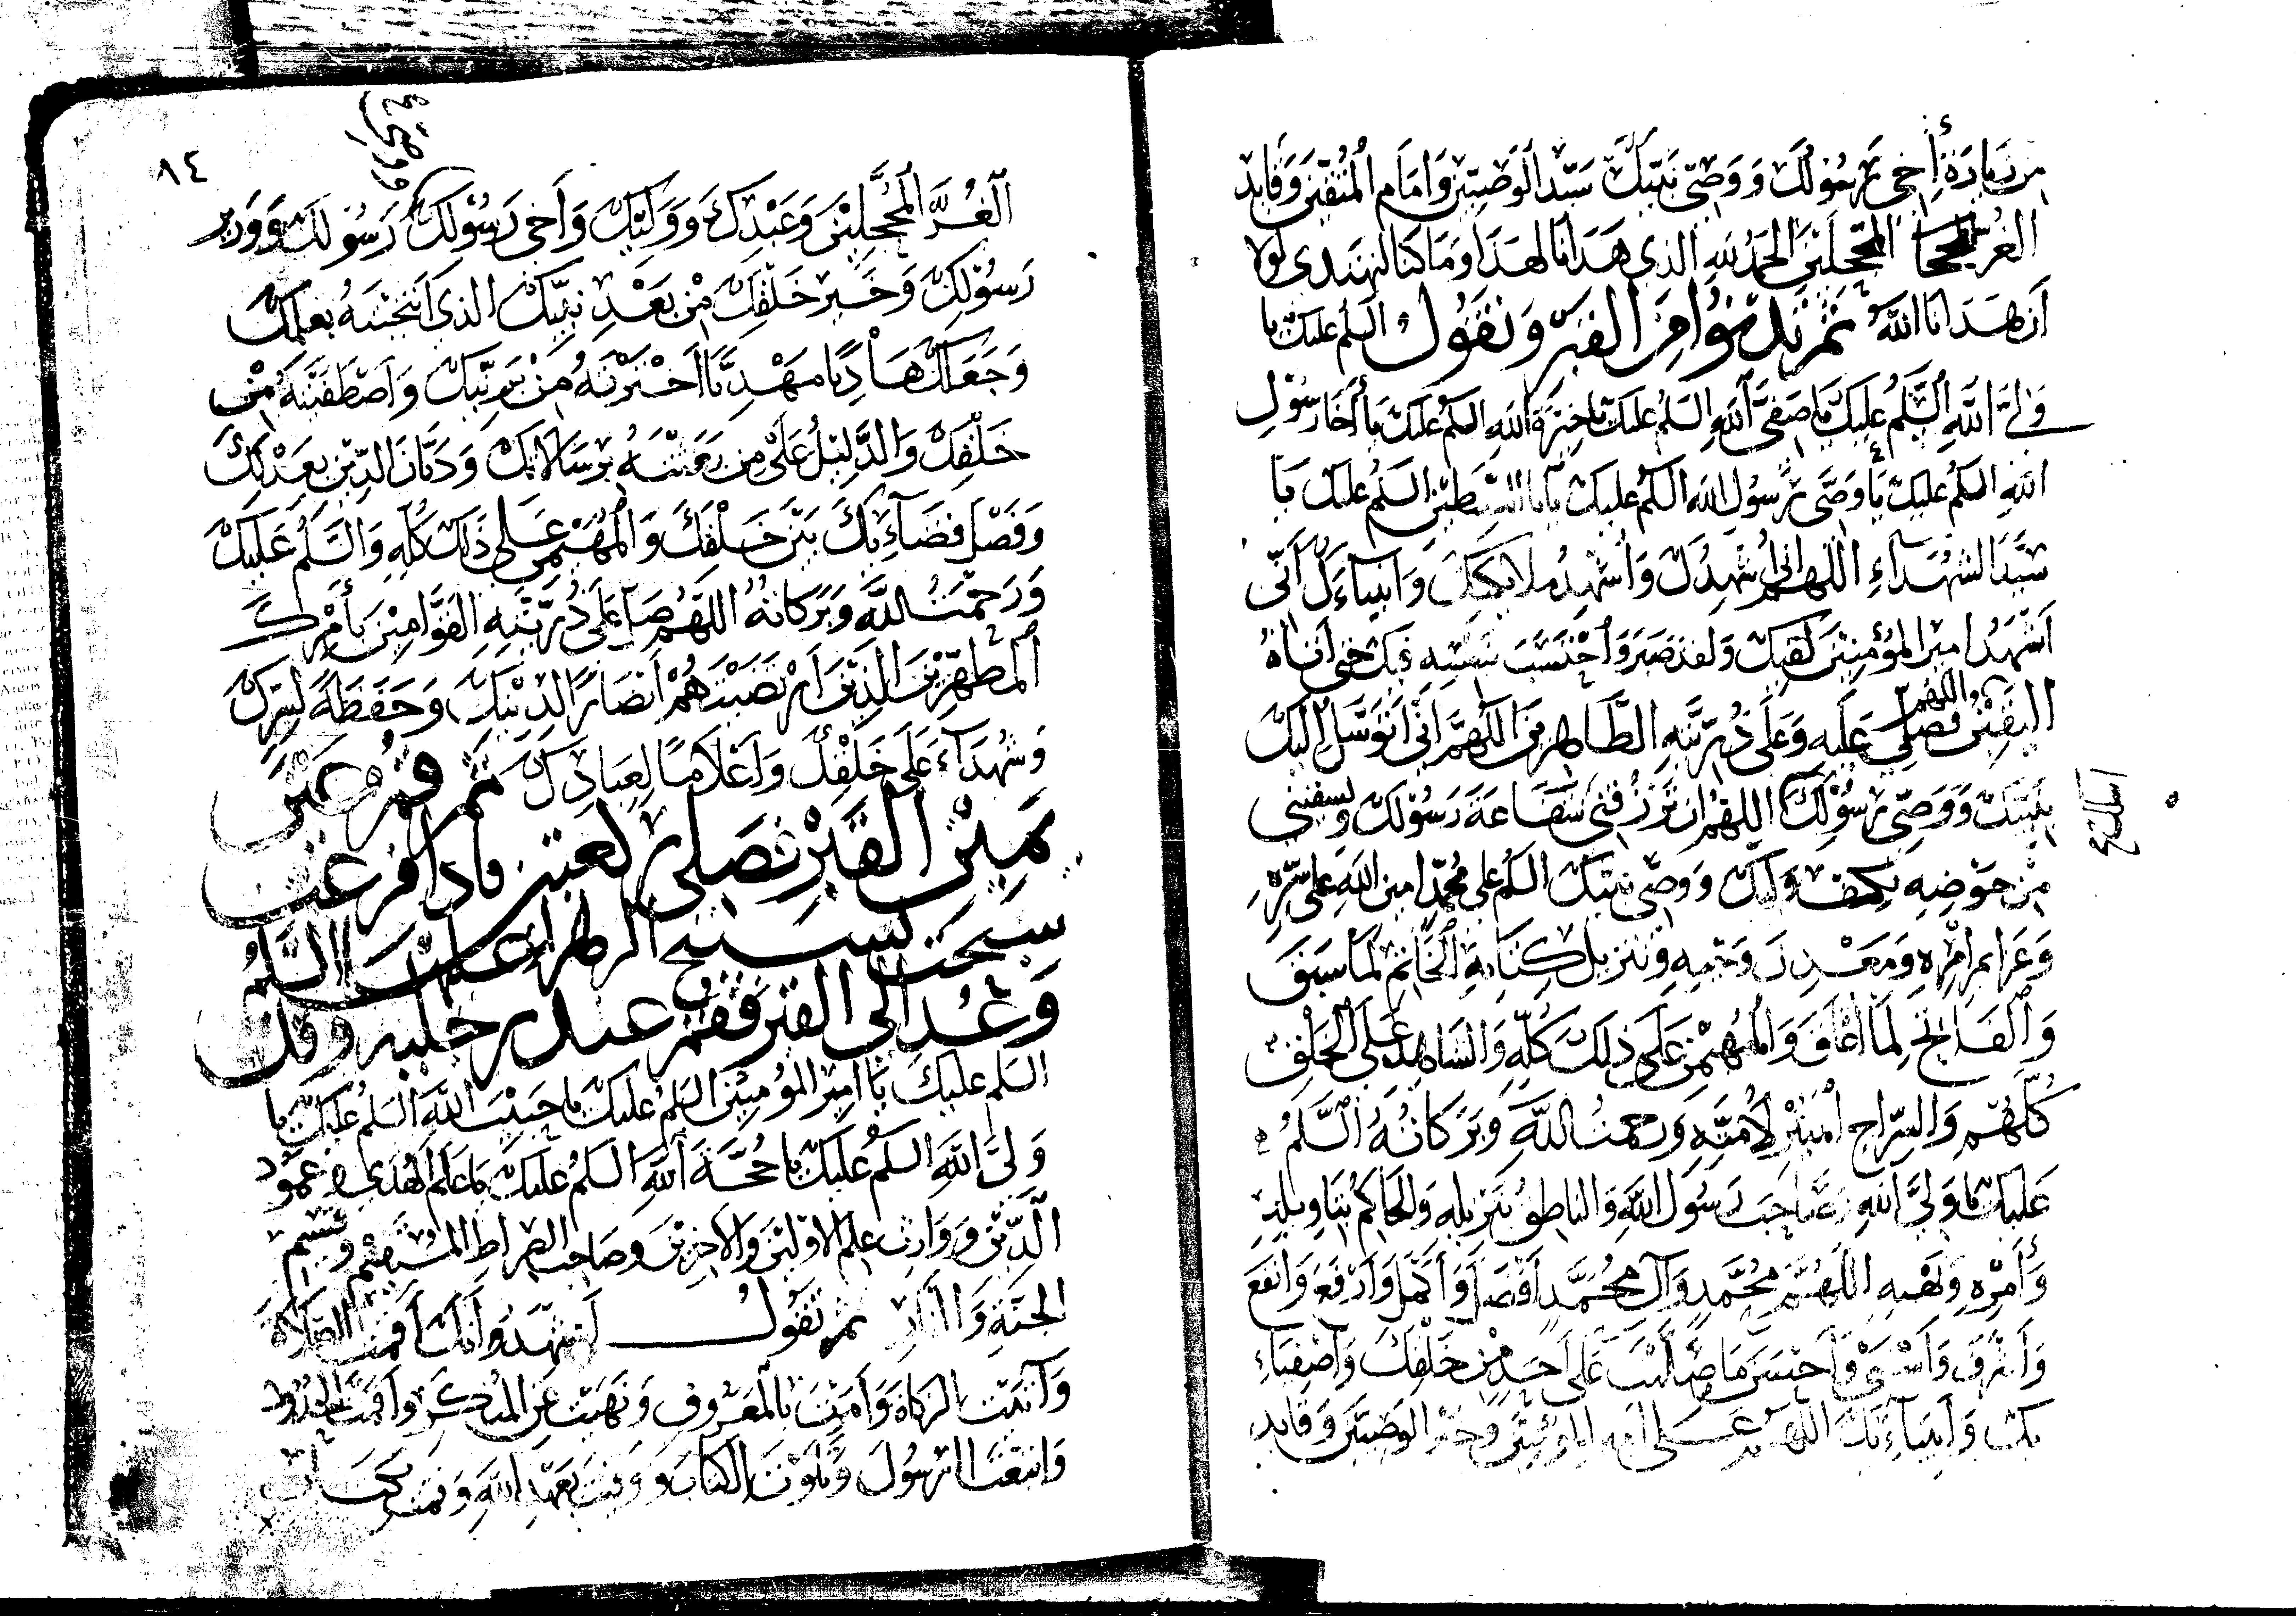 من زيارة أخي رسولك ووصي نبيك سيد الوصيين وامام المتقين وقايد
الغر المحجلين الحمد لله الذي هدانا لهذا وما كنا لنهتدى لولا
أن هدانا الله ثم تدنوا من القبر وتقول السلم عليك يا
ولي الله السلم عليك يا صفي الله السلم عليك يا خيرة الله السلم عليك يا أخا رسول
الله السلم عليك يا وصي رسول الله السلم عليك يا أبا السبطين السلم عليك يا
سيد الشهداء اللهم اني أشهدك وأشهد ملايكتك وأنبياءك أني
أشهد امير المؤمنين لقيك ولقد صبر واحتسب نفسه فيك حتى أتاه
اليقين اللهم فصلي عليه وعلى ذريته الطاهرين اللهم اني أتوسل اليك
بنبيك ووصي رسولك اللهم ان ترزقني شفاعة رسولك وتسقيني
اسالك
من حوضه بكف وليك ووصي نبيك السلم على محمد امين الله على سره
وعزايم امره ومعدن وحيه وتنزيل كتابه الخاتم لما سبق
والفاتح لما انغلق والمهيمن على ذلك كله والشاهد على الخلق
كلهم والسراج المنير لأمته ورحمت الله وبركاته السلم
عليك يا ولي الله صاحب رسول الله والناطق بتنزيله والحاكم بتاويله
وأمره ونهيه اللهم محمد وآل محمد أفضل وأكمل وأرفع وأنفع
وأشرف وأسنى وأحسن ما صليت على أحد من خلقك وأصفياء
يك وأنبياءيك اللهم على أمير المؤمنين وخير الوصيين وقايد
٨٤
الغر المحجلين وعبدك ووليك وأخي رسولك رسولك ووزير
رسولك وخير خلقك من بعد نبيك الذي انتجبته بعلمك
وجعلته هاديا مهديا اخترته من بريتك واصطفيته من
خلقك والدليل على من بعثته برسالاتك وديان الدين بعدلك
وفصل قضاءيك بين خلقك والمهيمن على ذلك كله والسلم عليك
ورحمت الله وبركاته اللهم صل على ذريته القوامين بأمرك
المطهرين الذين ارتضيتهم أنصارا لدينك وحفظة لسرك
وشهداء على خلقك وأعلاما لعبادك ثم قم عن
يمين القبر فصلي ركعتين فاذا فرغت
سبحت تسبيح الزهراء عليها السلم
وعد الى القبر فقم عند رجليه وقل
السلم عليك يا امير المؤمنين السلم عليك يا حبيب الله السلم عليك يا
ولي الله السلم عليك يا حجة الله السلم عليك يا علم الهدى وعمود
الدين ووارث علم الاولين والاخرين وصاحب الصراط المستقيم وقسيم
الجنة والنار ثم تقول لنشهد انك أقمت الصلاة
وآتيت الزكاة وأمرت بالمعروف ونهيت عن المنكر وأقمت الحدود
واتبعت الرسول وتلوت الكتاب ووفيت بعهد الله وقمت بكتاب